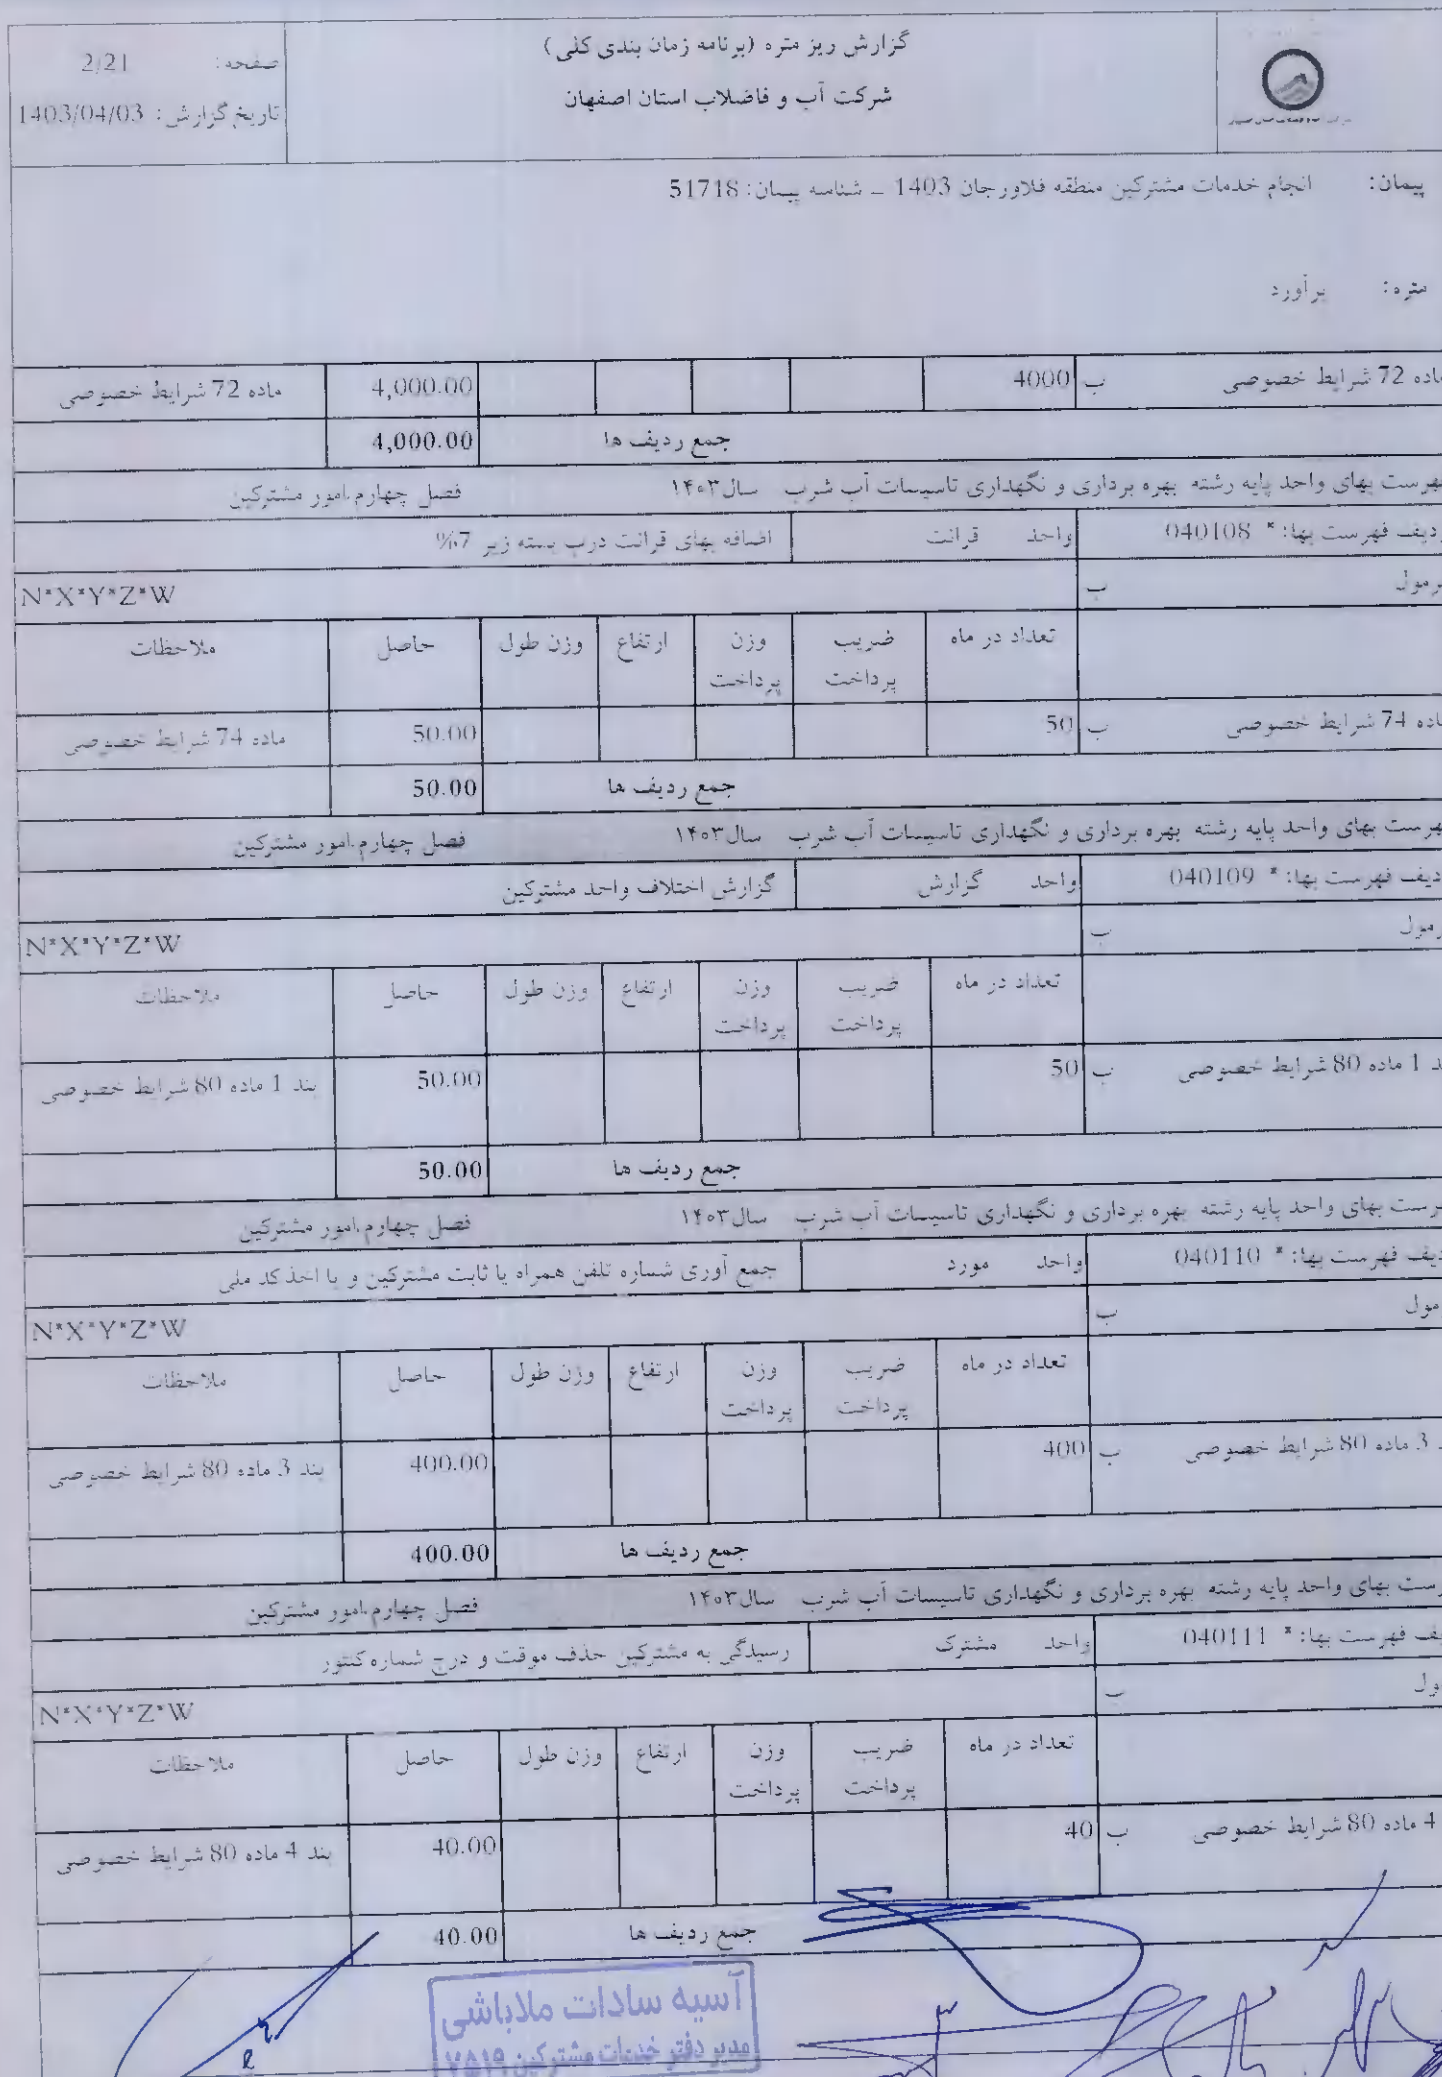 گزارش ریز متره (برنامه زمان بندی کلی)
شرکت آب و فاضلاب استان اصفهان
صفحه: 2/21
تاریخ گزارش: 1403/04/03
پیمان: انجام خدمات مشترکین منطقه فلاورجان 1403 - شناسه پیمان: 51718
متره: برآورد
ماده 72 شرایط خصوصی ب 4000 4,000.00 ماده 72 شرایط خصوصی
جمع ردیف ها 4,000.00
فهرست بهای واحد پایه رشته بهره برداری و نگهداری تاسیسات آب شرب سال۱۴۰۳ فصل چهارم.امور مشترکین
ردیف فهرست بها: * 040108 واحد قرائت اضافه بهای قرائت درب بسته زیر 7%
فرمول ب N*X*Y*Z*W
تعداد در ماه ضریب پرداخت وزن پرداخت ارتفاع وزن طول حاصل ملاحظات
ماده 74 شرایط خصوصی ب 50 50.00 ماده 74 شرایط خصوصی
جمع ردیف ها 50.00
فهرست بهای واحد پایه رشته بهره برداری و نگهداری تاسیسات آب شرب سال۱۴۰۳ فصل چهارم.امور مشترکین
ردیف فهرست بها: * 040109 واحد گزارش گزارش اختلاف واحد مشترکین
فرمول ب N*X*Y*Z*W
تعداد در ماه ضریب پرداخت وزن پرداخت ارتفاع وزن طول حاصل ملاحظات
بند 1 ماده 80 شرایط خصوصی ب 50 50.00 بند 1 ماده 80 شرایط خصوصی
جمع ردیف ها 50.00
فهرست بهای واحد پایه رشته بهره برداری و نگهداری تاسیسات آب شرب سال۱۴۰۳ فصل چهارم.امور مشترکین
ردیف فهرست بها: * 040110 واحد مورد جمع آوری شماره تلفن همراه یا ثابت مشترکین و یا اخذ کد ملی
فرمول ب N*X*Y*Z*W
تعداد در ماه ضریب پرداخت وزن پرداخت ارتفاع وزن طول حاصل ملاحظات
بند 3 ماده 80 شرایط خصوصی ب 400 400.00 بند 3 ماده 80 شرایط خصوصی
جمع ردیف ها 400.00
فهرست بهای واحد پایه رشته بهره برداری و نگهداری تاسیسات آب شرب سال۱۴۰۳ فصل چهارم.امور مشترکین
ردیف فهرست بها: * 040111 واحد مشترک رسیدگی به مشترکین حذف موقت و درج شماره کنتور
فرمول ب N*X*Y*Z*W
تعداد در ماه ضریب پرداخت وزن پرداخت ارتفاع وزن طول حاصل ملاحظات
4 ماده 80 شرایط خصوصی ب 40 40.00 بند 4 ماده 80 شرایط خصوصی
جمع ردیف ها 40.00
آسیه سادات ملاباشی
مدیر دفتر خدمات مشترکین